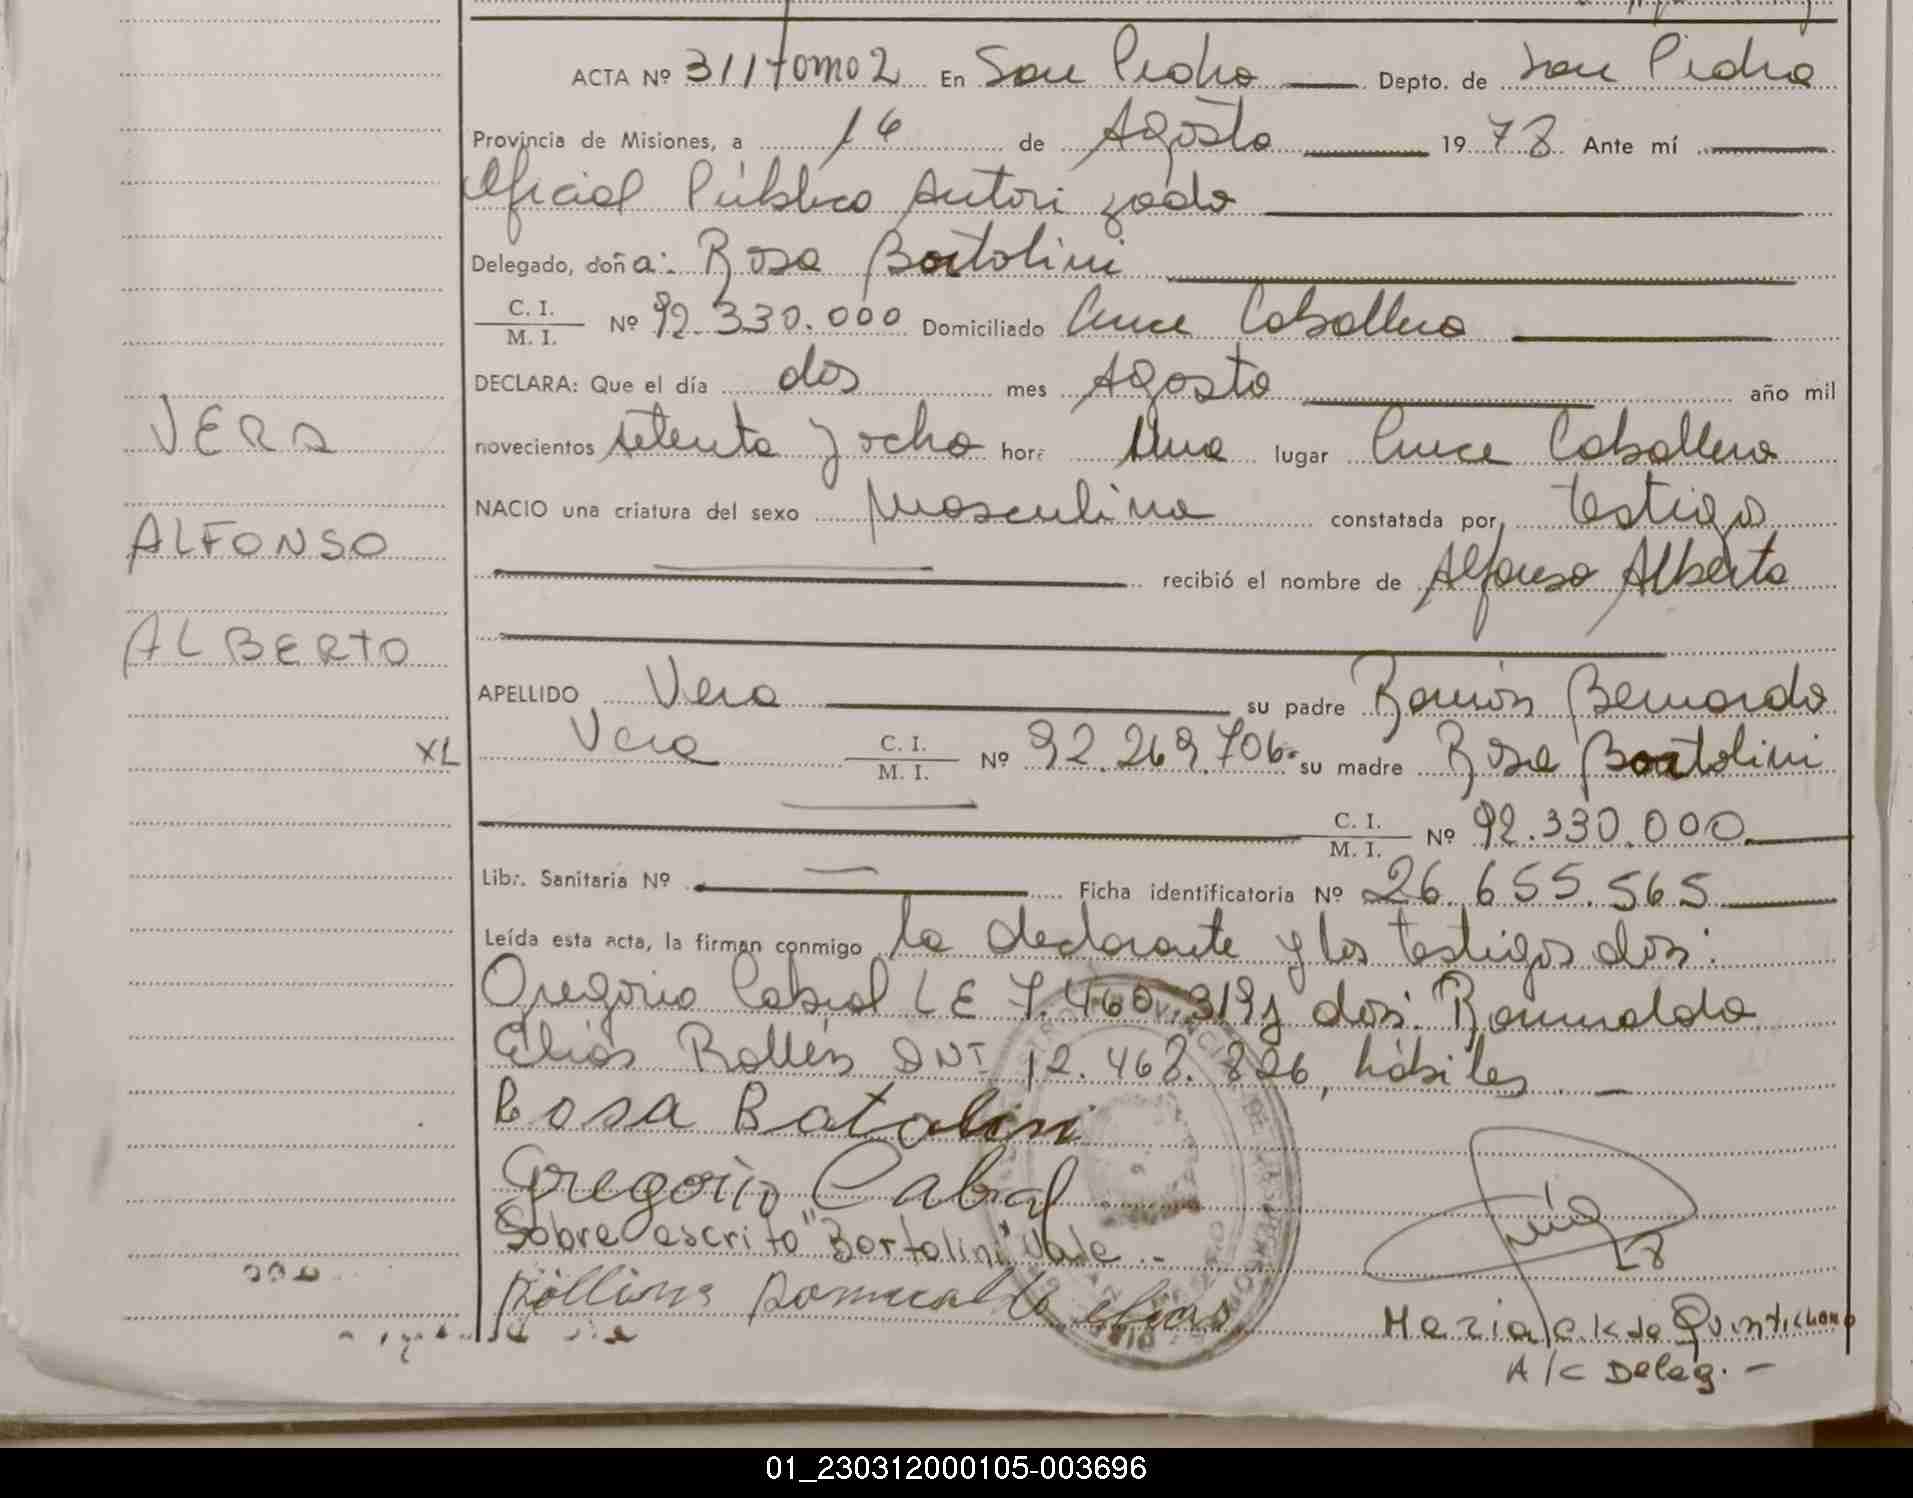 ACTA Nº 311 tomo 2 En San Pedro Depto. de San Pedro
Provincia de Misiones, a 16 de Agosto 1978 Ante mí
Oficial Público Autorizado
Delegado, doña: Rosa Bortolini
C. I. / M. I. Nº 92.330.000 Domiciliado Cruce Caballero
DECLARA: Que el día dos mes Agosto año mil
VERA
novecientos setenta y ocho hora Una lugar Cruce Caballero
NACIO una criatura del sexo Masculino constatada por testigos
ALFONSO
recibió el nombre de Alfonso Alberto
ALBERTO
APELLIDO Vera su padre Ramón Bernardo
XL
Vera C. I. / M. I. Nº 92.269.706- su madre Rosa Bortolini
C. I. / M. I. Nº 92.330.000
Libr. Sanitaria Nº Ficha identificatoria Nº 26.655.565
Leída esta acta, la firman conmigo la declarante y los testigos don:
Gregorio Cabral LE 7.460.319 y don: Romualdo
Elías Rollins DNI 12.468.826, hábiles. —
Rosa Batolini
Gregorio Cabral
Sobre escrito "Bortolini" Vale.-
Rollins Romualdo elias
Maria
A/C Deleg.-
01_230312000105-003696